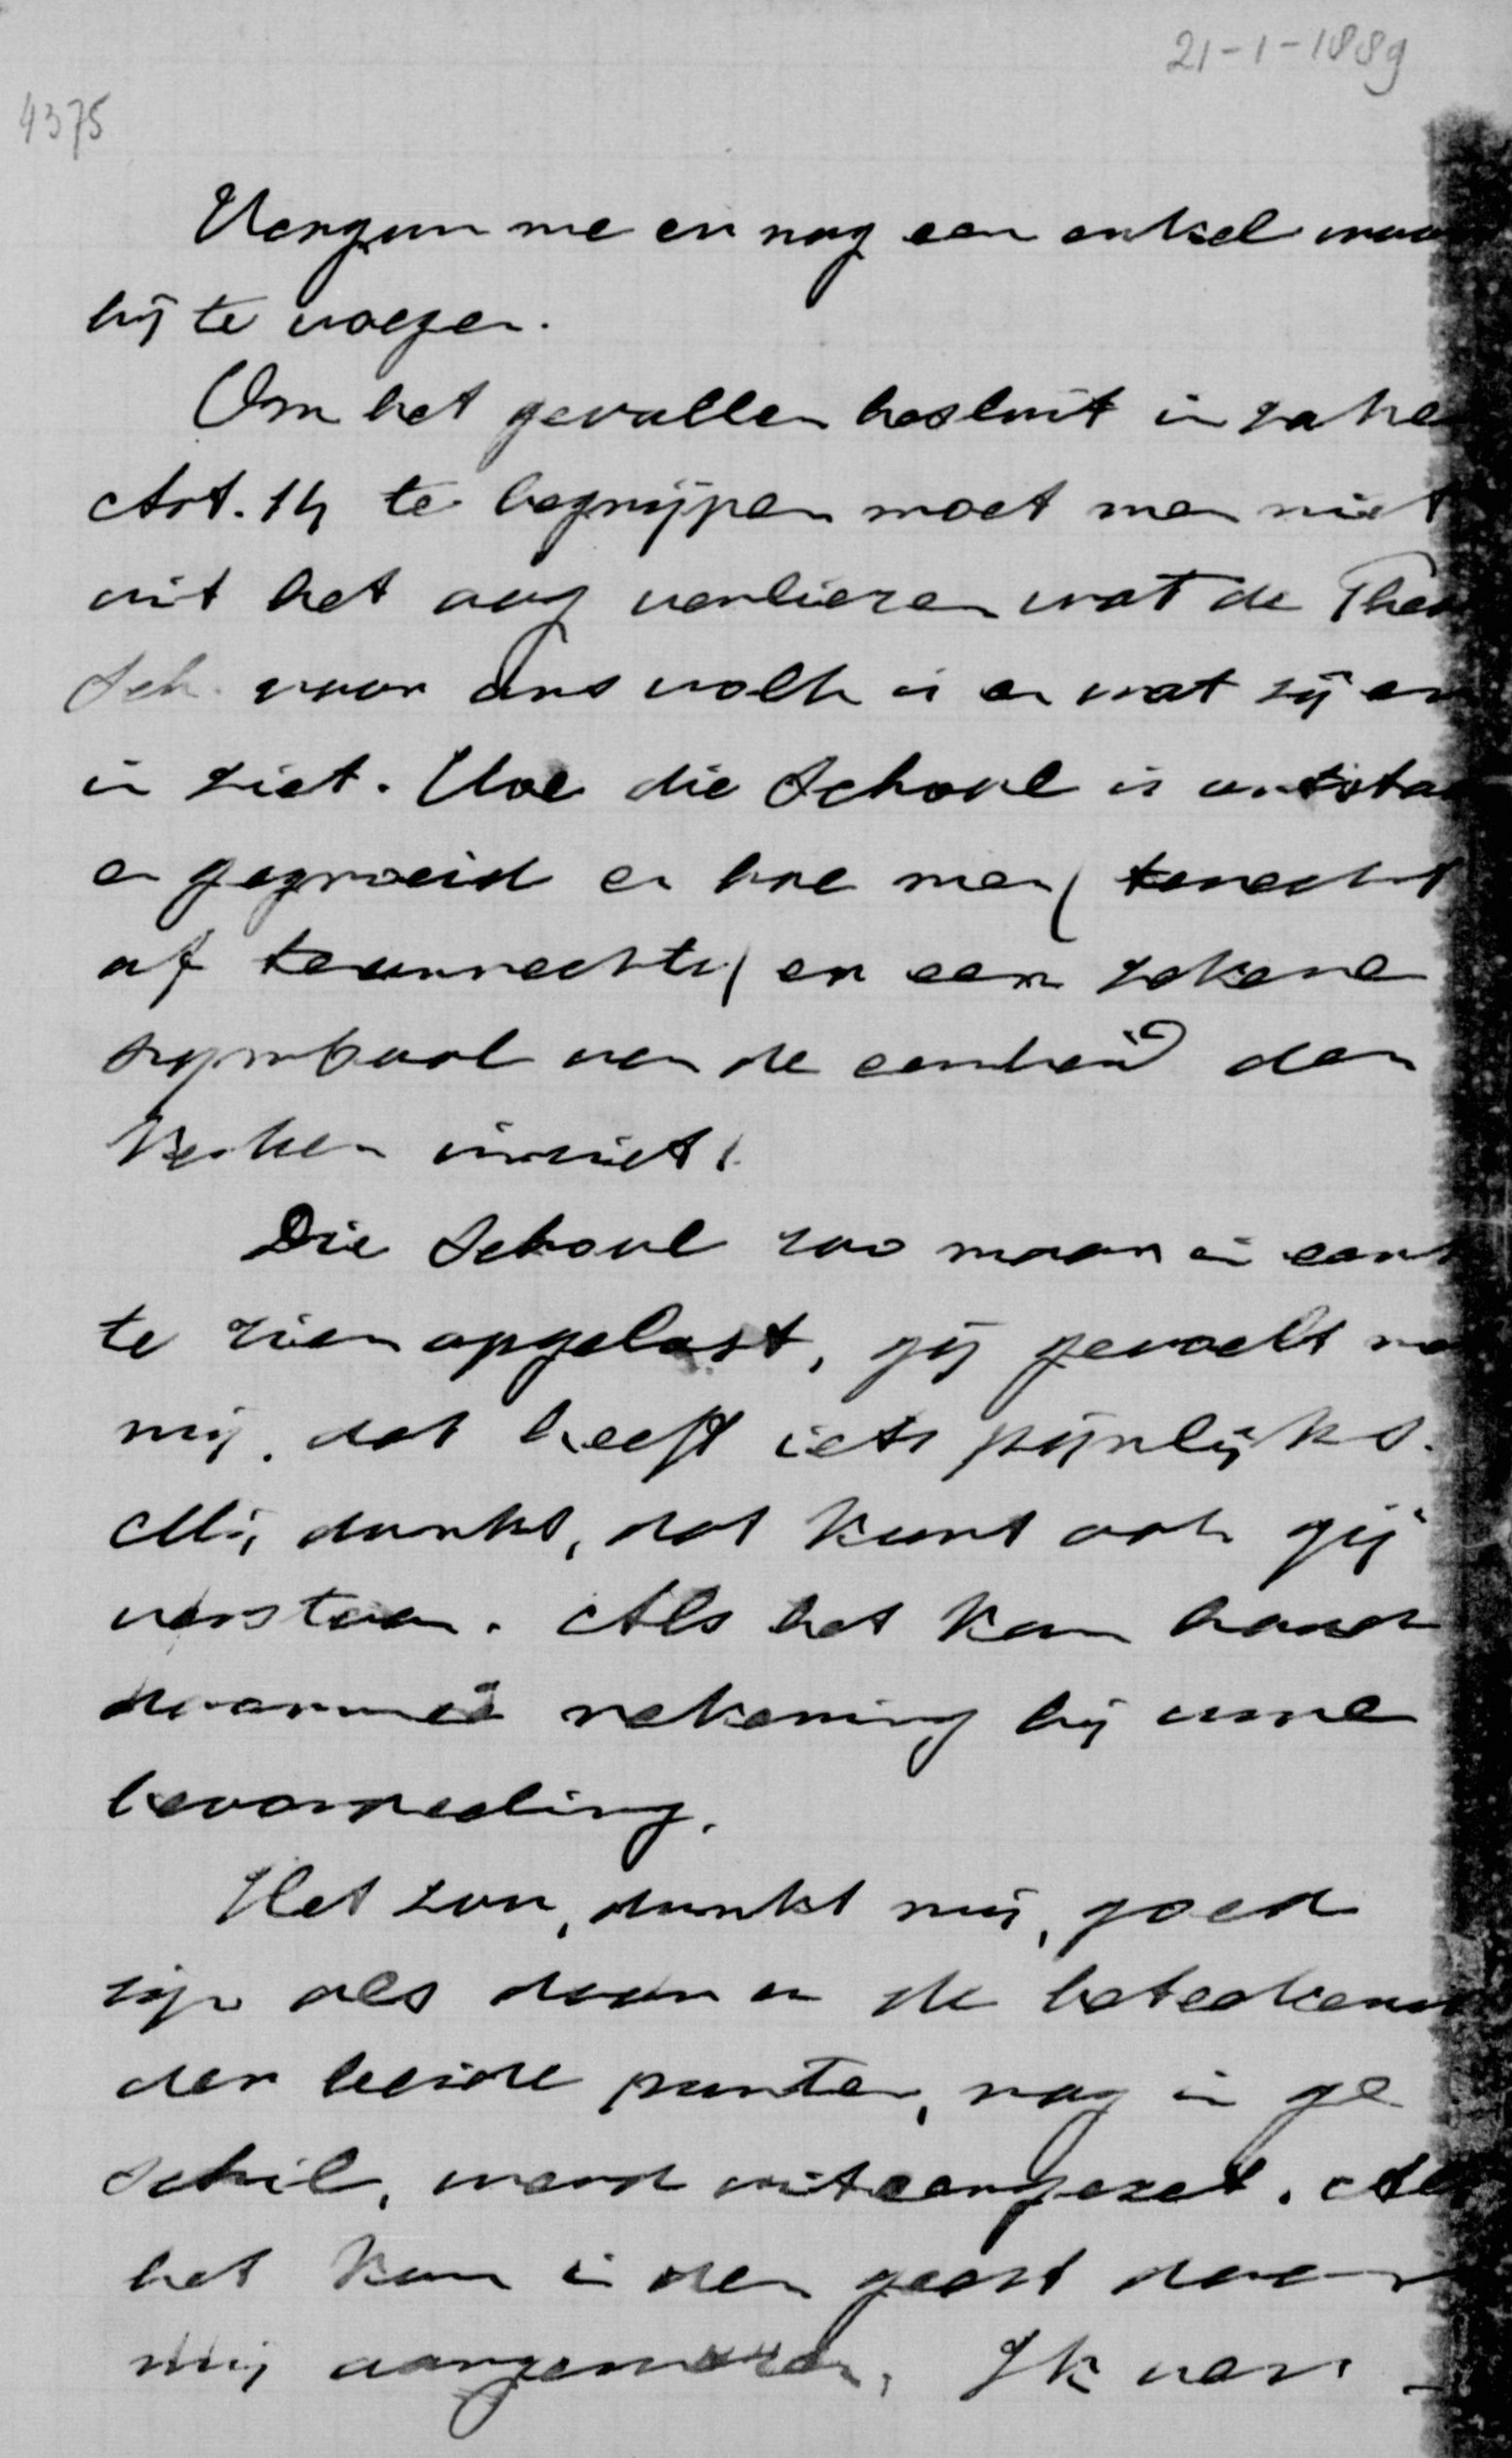 21-1-1889
4375
Vergun me er nog een enkel woord
bij te voegen.
Om het gevallen besluit in zake
Art. 14 te begrijpen moet men niet
uit het oog verliezen wat de Theol
Sch. voor ons volk is en wat zij er
in ziet. Hoe die School is ontstaan
en gegroeid en hoe men (terecht
of ten onrechte) er een zekere
symbool van de eenheid der
Kerken in ziet.
Die School zoo maar in eens
te zien opgelost, gij gevoelt met
mij, dat heeft iets pijnlijks.
Mij dunkt, dat kunt ook gij
verstaan. Als het kan houdt
daarmeê rekening bij uwe
beoordeeling.
Het zou, dunkt mij, goed
zijn als door u de beteekenis
der beide punten, nog in ge
schil, werd uiteengezet. Als
het kan in den geest door
mij aangegeven. Ik ver-